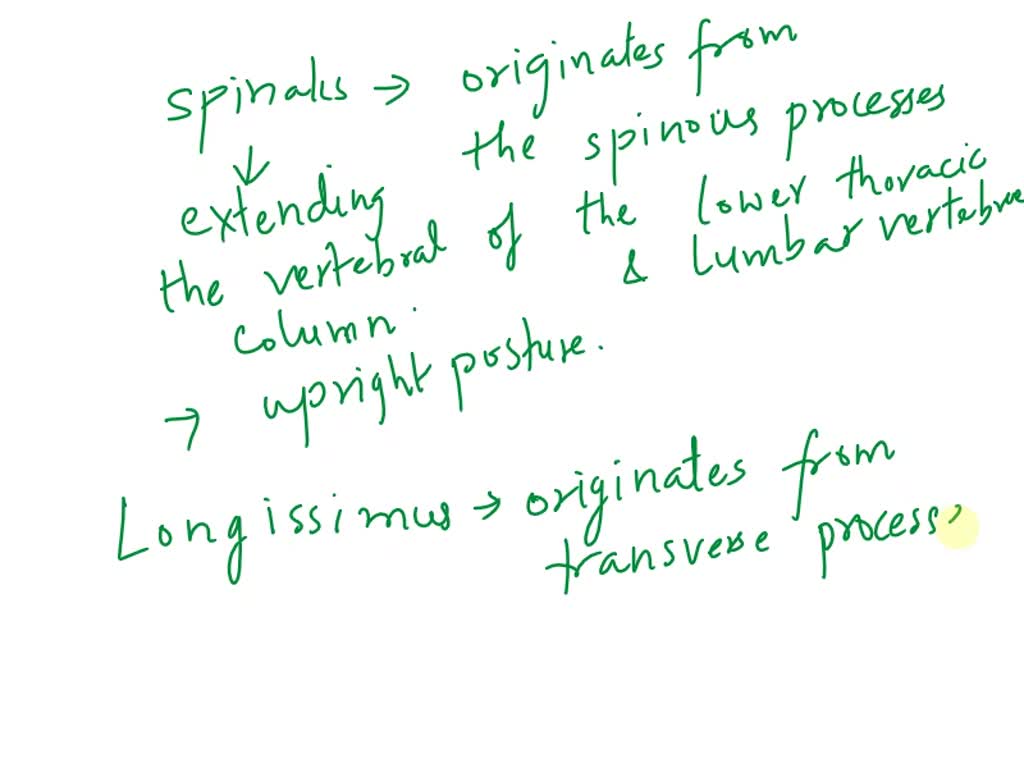 spinalis → originates from
the spinous processes
of the lower thoracic
& lumbar vertebrae
↓
extending
the vertebral
column.
→ upright posture.
Longissimus → originates from
transverse process